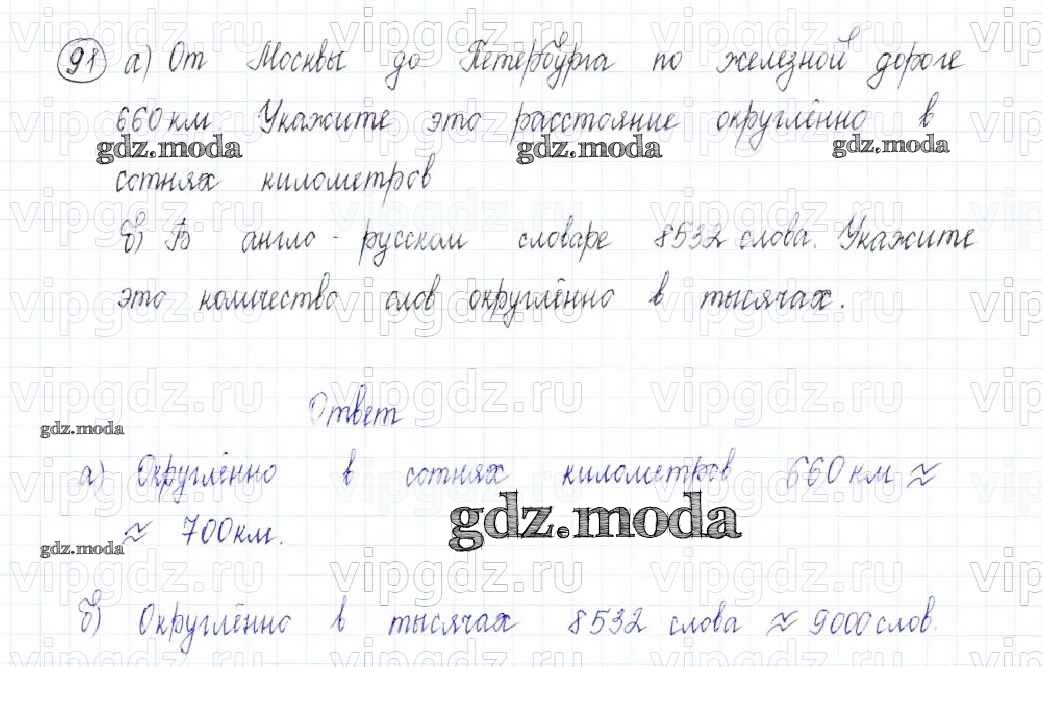 91 а) От Москвы до Петербурга по железной дороге
660 км Укажите это расстояние округлённо в
gdz.moda gdz.moda gdz.moda
сотнях километров
б) В англо-русском словаре 8532 слова. Укажите
это количество слов округлённо в тысячах.
vipgdz.ru vipgdz.ru vipgdz.ru vip
Ответ
gdz.moda
а) Округлённо в сотнях километров 660 км ≈
gdz.moda
≈ 700 км.
gdz.moda
vipgdz.ru vipgdz.ru vipgdz.ru vip
б) Округлённо в тысячах 8532 слова ≈ 9000 слов.